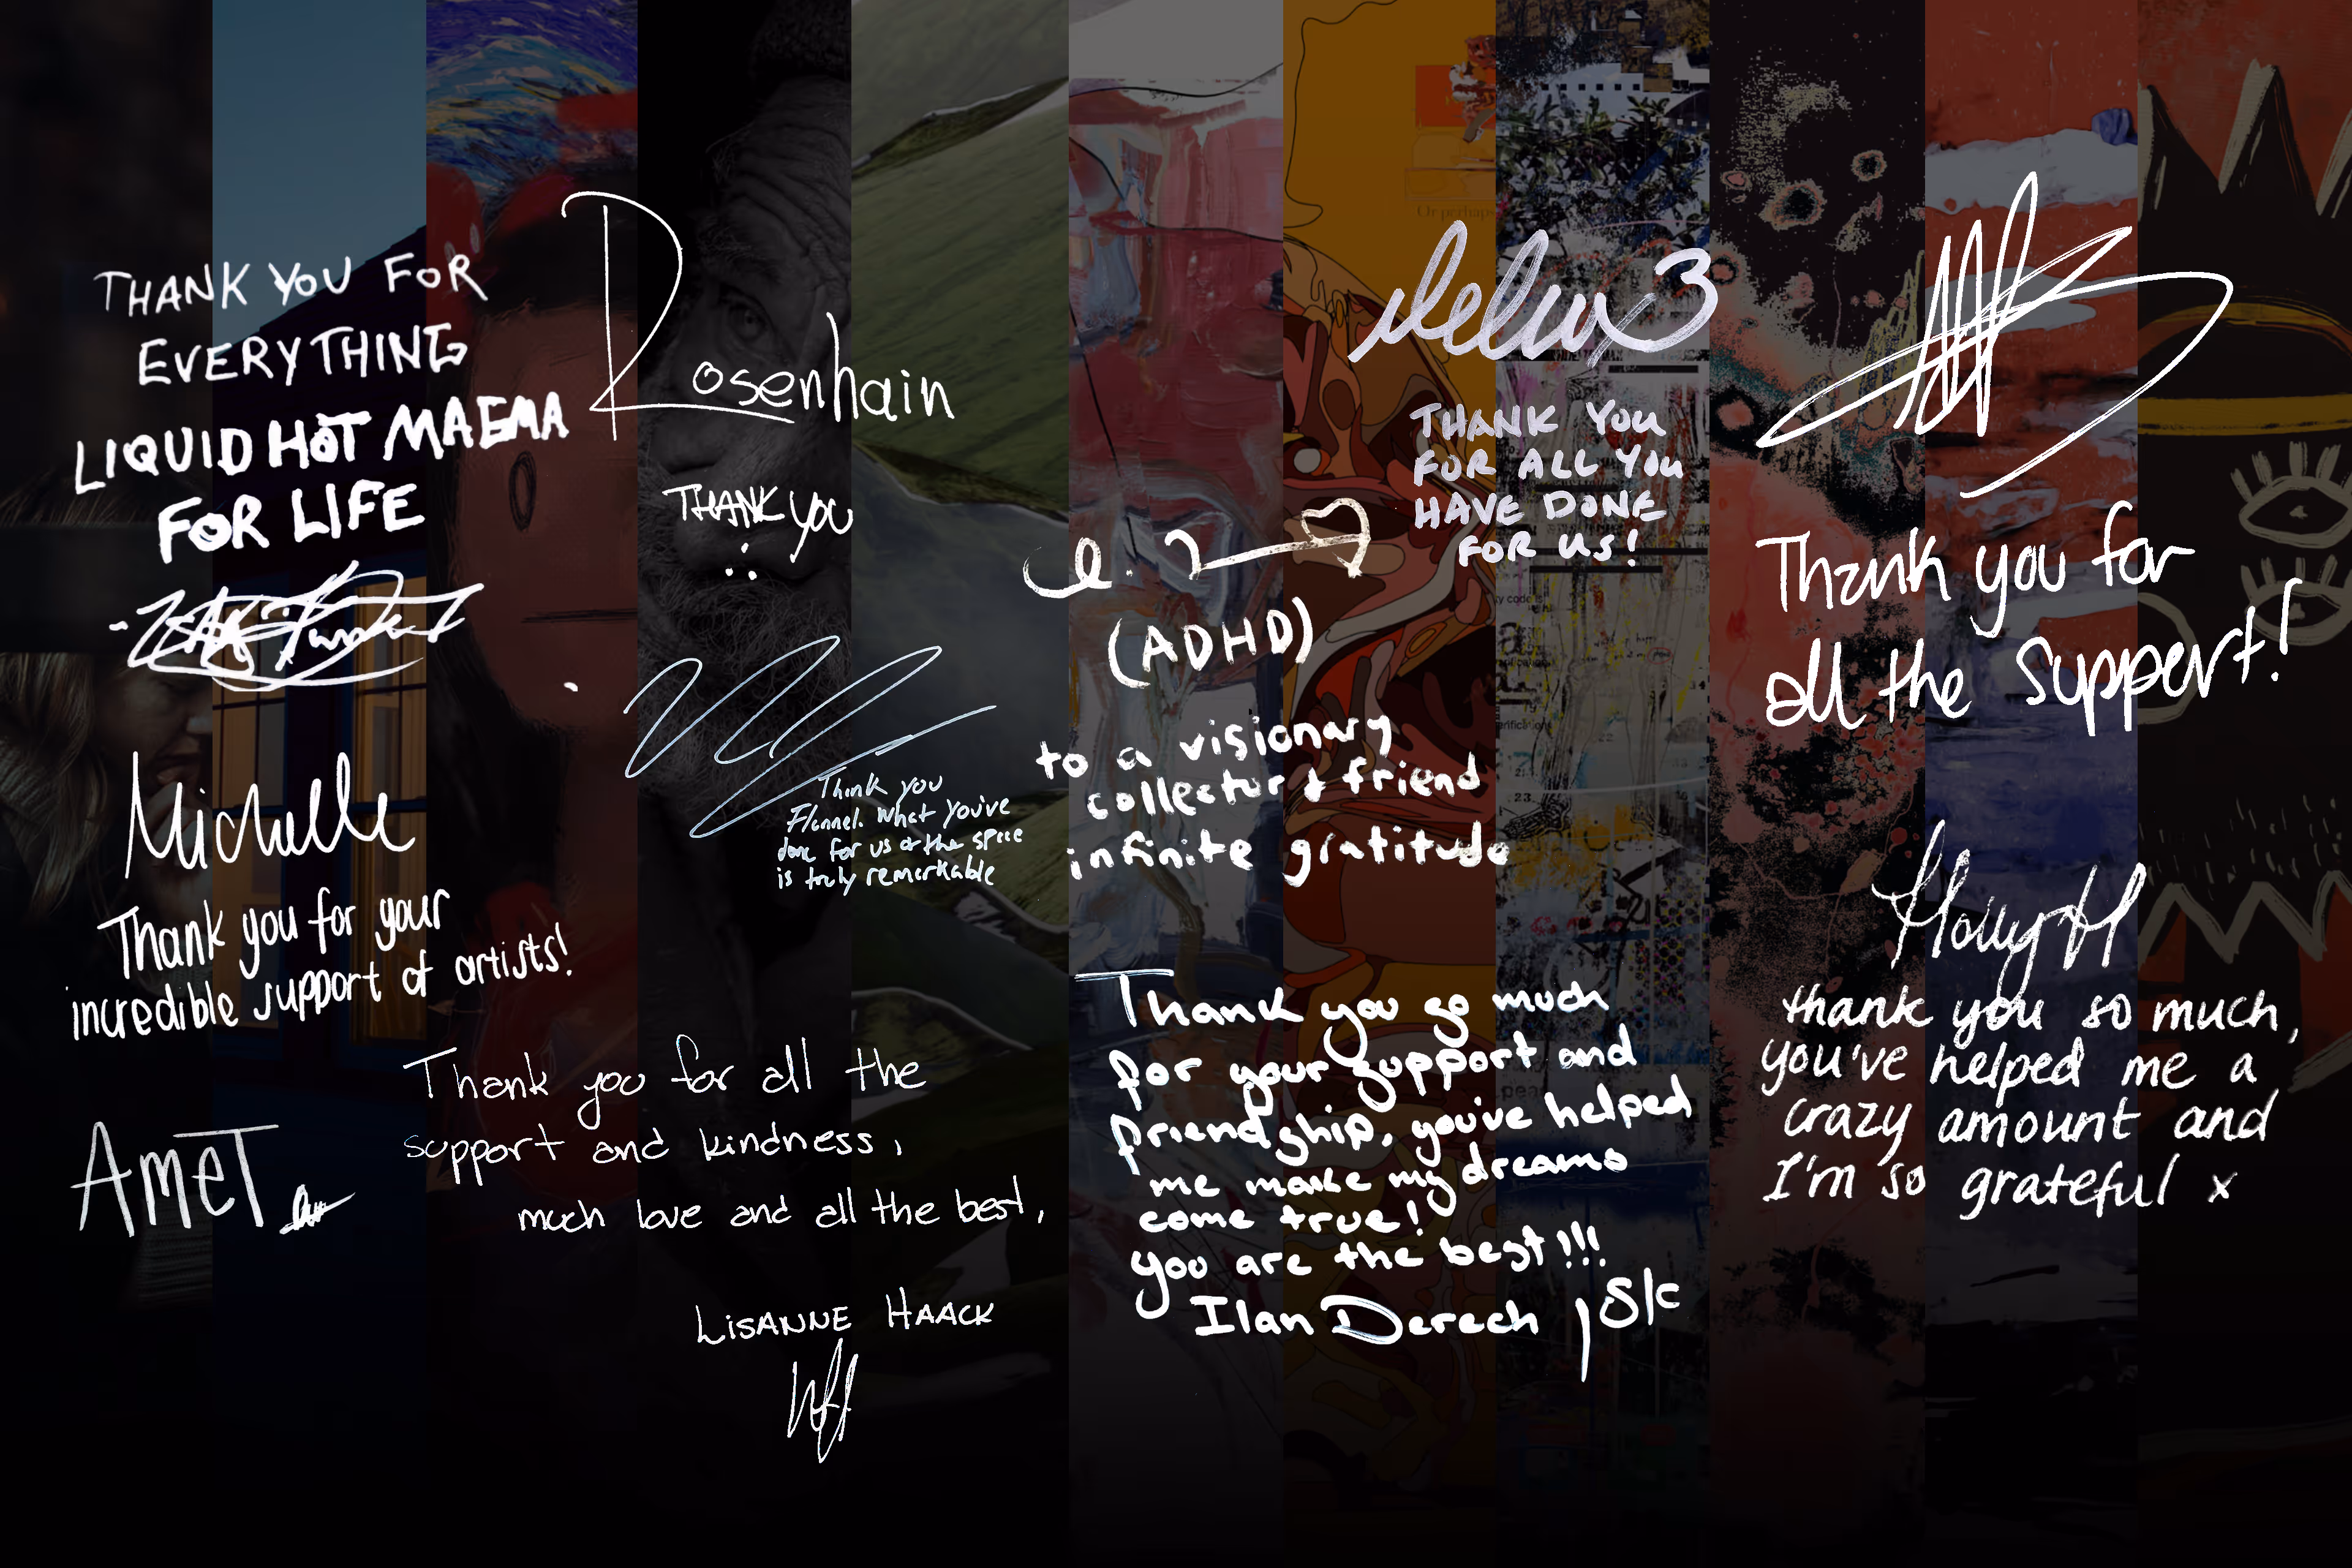 THANK YOU FOR
EVERYTHING
LIQUID HOT MAGMA
FOR LIFE
Rosenhain
THANK YOU
Thank you
Flannel. What you've
done for us & the space
is truly remarkable
Michelle
Thank you for your
incredible support of artists!
AmeT
Thank you for all the
support and kindness,
much love and all the best,
LISANNE HAACK
delux3
THANK YOU
FOR ALL YOU
HAVE DONE
FOR US!
(ADHD)
to a visionary
collector & friend
infinite gratitude
Thank you so much
for your support and
friendship, you've helped
me make my dreams
come true!
you are the best!!!
Ilan Derech
Thank you for
all the support!
Holly H
thank you so much,
you've helped me a
crazy amount and
I'm so grateful x
Or perhaps